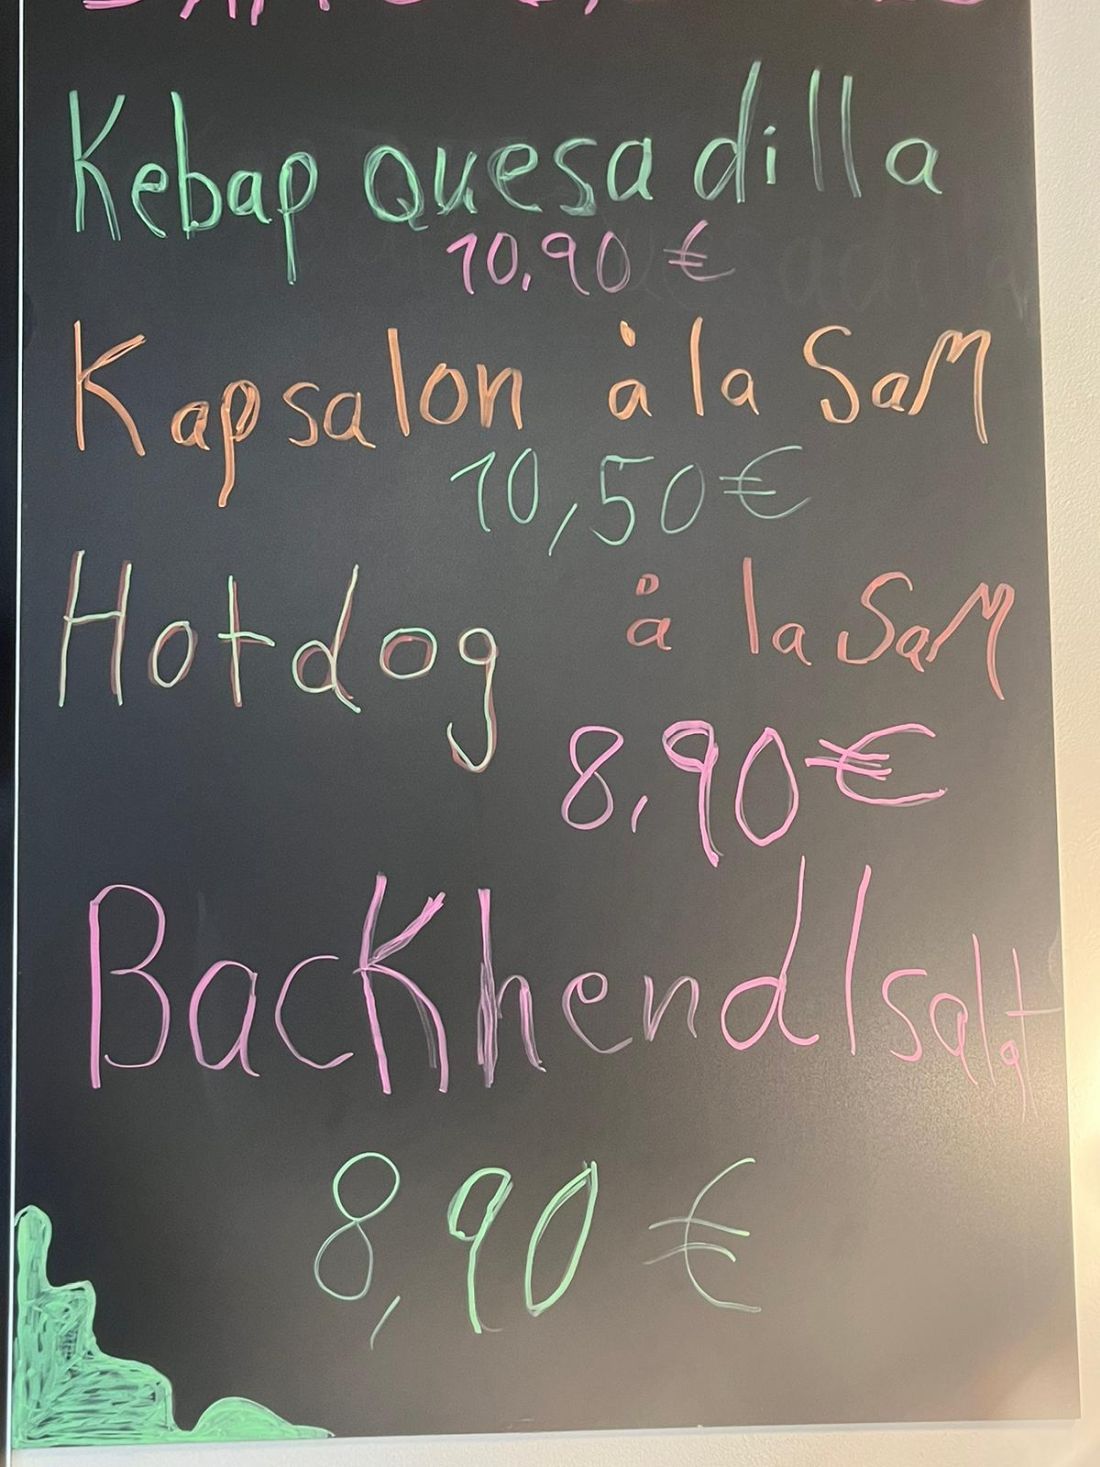 Kebap Quesadilla
10.90 €
Kapsalon à la SaM
10,50€
Hotdog à la SaM
8,90€
Backhendlsalat
8,90 €